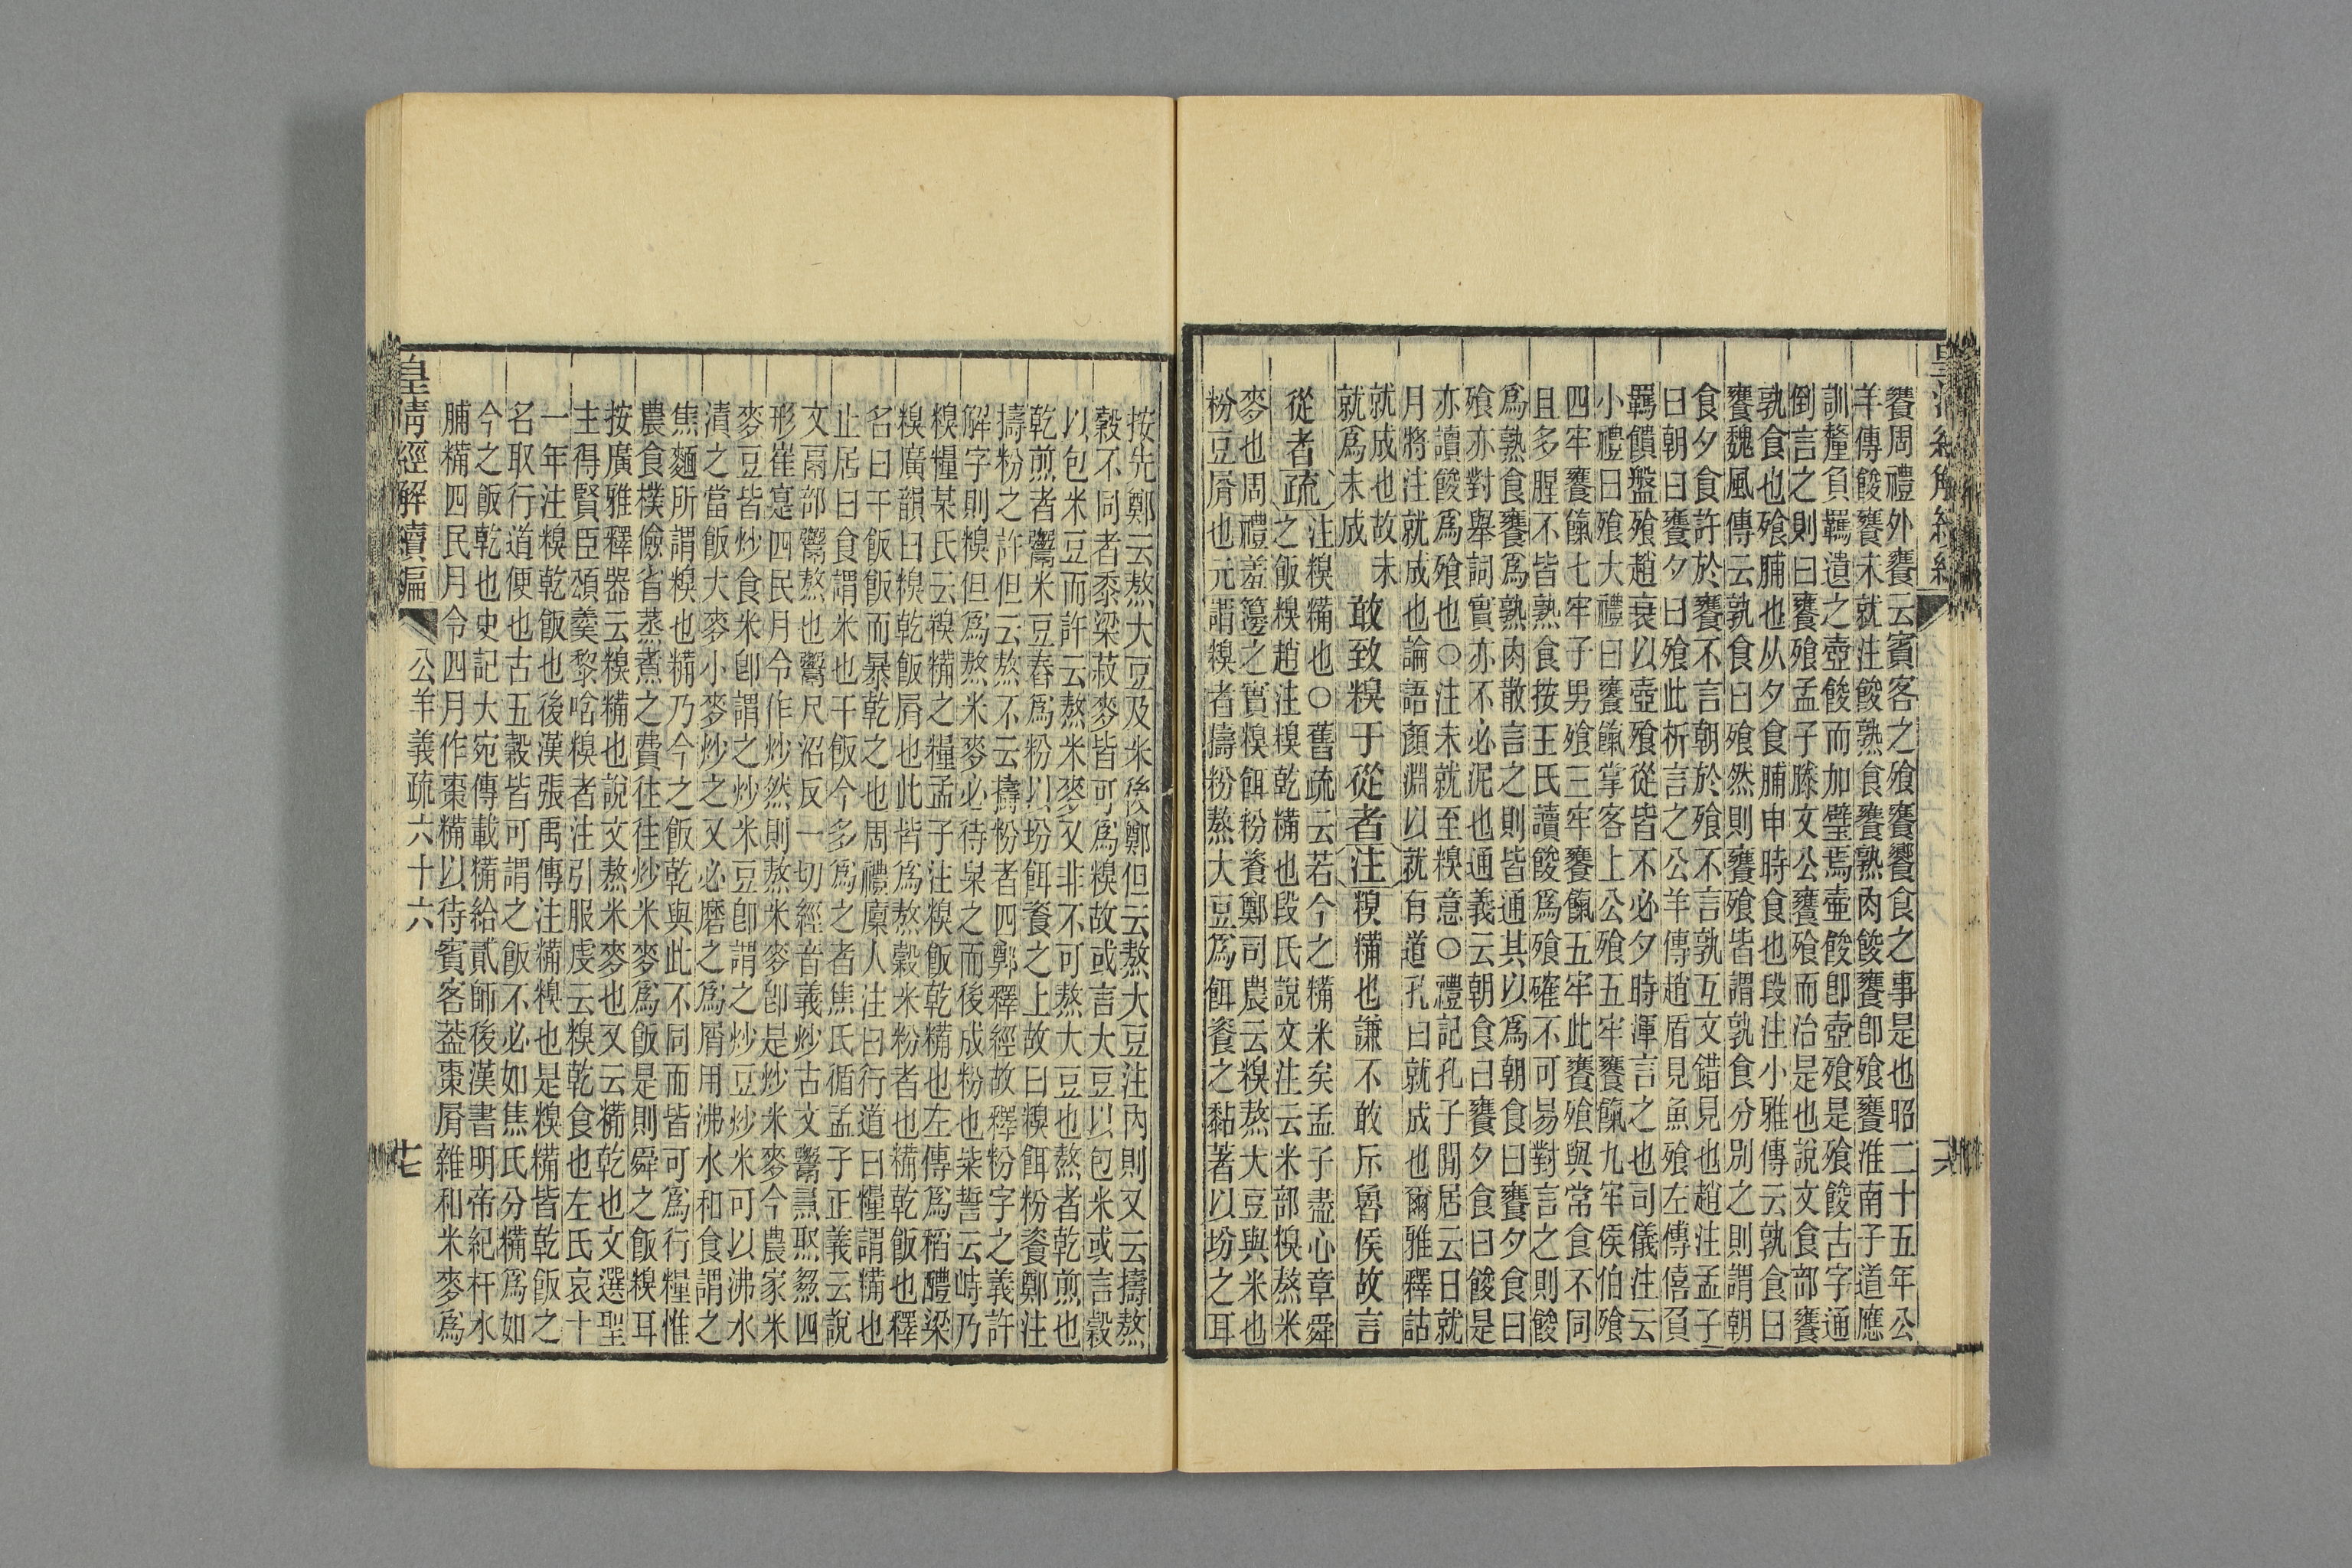 饔周禮外饔云賓客之飱饔饗食之事是也昭二十五年公
羊傳餕饔未就注餕熟食饔熟肉餕饔卽飱饔淮南子道應
訓釐負羈遺之壺餕而加璧焉壷餕卽壺飱是飱餕古字通
倒言之則曰饔飱孟子滕文公饔飱而治是也說文食部饔
孰食也飱餔也从夕食餔申時食也段注小雅傳云孰食曰
饔魏風傳云孰食曰飱然則饔飱皆謂孰食分別之則謂朝
食夕食許於饔不言朝於飱不言孰互文錯見也趙注孟子
曰朝曰饔夕曰飱此析言之公羊傳趙盾見魚飱左傳僖負
羈饋盤飱趙衰以壺飱從皆不必夕時渾言之也司儀注云
小禮曰飱大禮曰饔餼掌客上公飱五牢饔餼九牢侯伯飱
四牢饔餼七牢子男飱三牢饔餼五牢此饔飱與常食不同
且多腥不皆熟食按王氏讀餕爲飱確不可易對言之則餕
爲熟食饔爲熟肉散言之則皆通其以爲朝食曰饔夕食曰
飱亦對舉詞實亦不必泥也通義云朝食曰饔夕食曰餕是
亦讀餕爲飱也○注未就至糗意○禮記孔子閒居云日就
月將注就成也論語顏淵以就有道孔曰就成也爾雅釋詁
就成也故未
就爲未成
敢致糗于從者注糗糒也謙不敢斥魯侯故言
從者疏注糗糒也○舊疏云若今之糒米矣孟子盡心章舜
之飯糗趙注糗乾糒也段氏說文注云米部糗熬米
麥也周禮羞籩之實糗餌粉餈鄭司農云糗熬大豆與米也
粉豆屑也元謂糗者擣粉熬大豆爲餌餈之黏著以坋之耳
按先鄭云熬大豆及米後鄭但云熬大豆注內則又云擣熬
穀不同者黍梁菽麥皆可爲糗故或言大豆以包米或言穀
以包米豆而許云熬米麥又非不可熬大豆也熬者乾煎也
乾煎者鬻米豆舂爲粉以坋餌餈之上故曰糗餌粉餈鄭注
擣粉之許但云熬不云擣粉者四鄭釋經故釋粉字之義許
解字則糗但爲熬米麥必待臬之而後成粉也柴誓云峙乃
糗糧某氏云糗糒之糧孟子注糗飯乾糒也左傳爲稻醴梁
糗廣韻曰糗乾飯屑也此皆爲熬穀米粉者也糒乾飯也釋
名曰干飯飯而暴乾之也周禮廩人注曰行道曰糧謂糒也
止居曰食謂米也干飯今多爲之者焦氏循孟子正義云說
文鬲部䰞熬也䰞尺沼反一切經音義炒古文䰞㷅煼䊮四
形崔寔四民月令作炒然則熬米麥卽是炒米麥今農家米
麥豆皆炒食米卽謂之炒米豆卽謂之炒豆炒米可以沸水
漬之當飯大麥小麥炒之又必磨之爲屑用沸水和食謂之
焦麵所謂糗也糒乃今之飯乾與此不同而皆可爲行糧惟
農食樸儉省蒸煮之費往往炒米麥爲飯是則舜之飯糗耳
按廣雅釋器云糗糒也說文熬米麥也又云糒乾也文選聖
主得賢臣頌羹黎唅糗者注引服虔云糗乾食也左氏哀十
一年注糗乾飯也後漢張禹傳注糒糗也是糗糒皆乾飯之
名取行道便也古五穀皆可謂之飯不必如焦氏分糒爲如
今之飯乾也史記大宛傳載糒給貳師後漢書明帝紀杆水
脯糒四民月令四月作棗糒以待賓客葢棗屑雜和米麥爲
皇清經解續編
公羊義疏六十六
十七